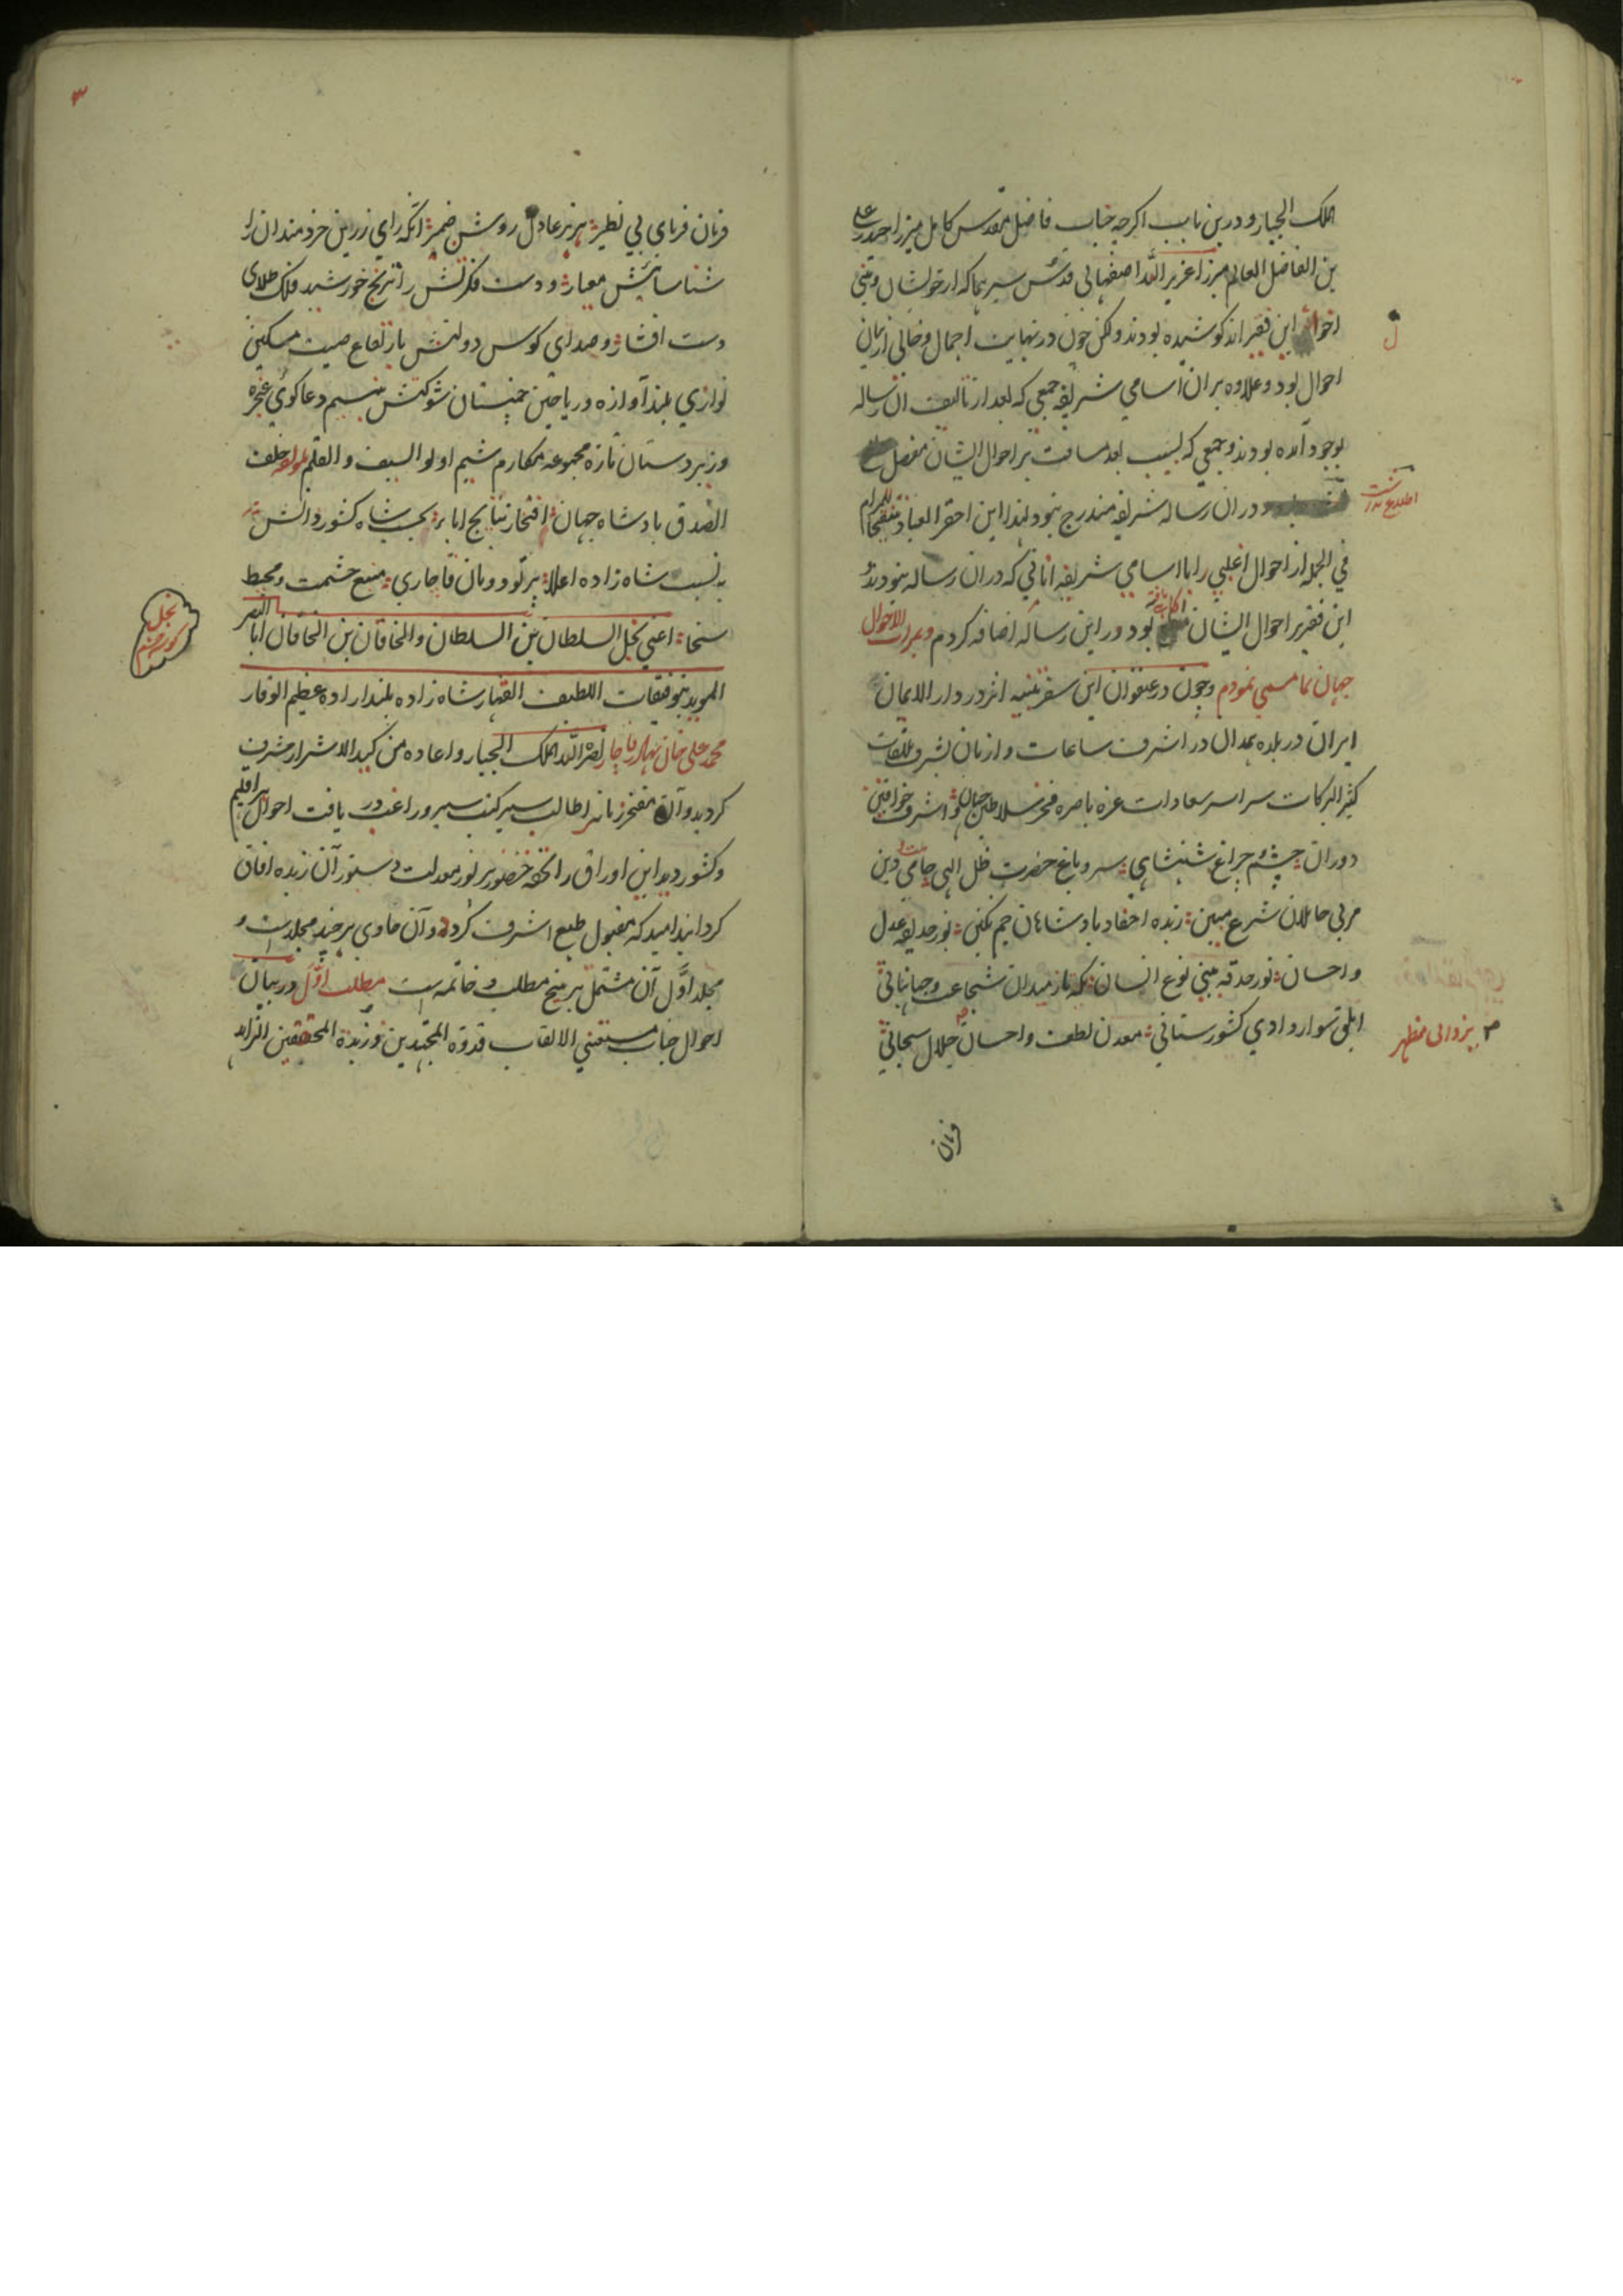 الملک الجبار و درین باب اکرچه جناب فاضل مقدس کامل میرزا حیدر علی
بن الفاضل العالم میرزا عزیر الله اصفهانی قدس سرهما که از خویشان و بنی
اخوال این فقیر اند کوشیده بودند ولکن چون در نهایت اجمال و خالی از بیان
ل
احوال بود و علاوه بر ان اسامی شریفه جمعی که بعد از تالیف ان رساله
بوجود آمده بودند و جمعی که بسبب بعد مسافت بر احوال ایشان مفصل
اطلاع نداشت
در ان رساله شریفه مندرج نبود لهذا این احقر العباد تنقیحا للمرام
فی الجمله از احوال اغلبی را با اسامی شریفه انانی که در ان رساله نبودند
این فقیر بر احوال ایشان بود در این رساله اضافه کردم و بمرات الاحوال
جهان نما مسمی نمودم و چون در عنفوان این سفر در دار الایمان
ایران در بلده بعدال در اشرف ساعات و ازمان بشرف ملاقات
کثیر البرکات سراسر سعادات غره باصره فخر سلاطین جهان و اشرف خواقین
دوران چشم چراغ شنشاهی سرو باغ حضرت ظل الهی حامی ملت و دین
مربی حاملان شرع مبین زبده احفاد بادشاهان جم نکین نور حدیقه عدل
و احسان نور حدقه بینی نوع انسان یکه تاز میدان شجاعت و جهانبانی
ابلق سوار وادی کشورستانی معدن لطف و احسان جلال سبحانی
یزدانی مظهر
فرمان
۳
فرمان فرمای بی نظیر هزبر عادل روشن ضمیر انکه رای زرین خردمندان را
شناسائیش معیار و دست فکرتش را ترنج خورشید فلک طلای
دست افشار و صدای کوس دولتش بارتفاع صیت مسکین
نوازی بلند آوازه و ریاحین چمنستان شوکتش بنسیم دعا کوئی عجزه
و زیردستان تازه مجموعه مکارم شیم اولو السیف و القلم خلف
الصدق بادشاه جهان افتخار نتایج اباء بحسب شاه کشور دانش
به نسبت شاه زاده اعلا پرتو دودمان قاجاری منبع حشمت و محیط
سخا اعنی نجل السلطان بن السلطان والخاقان بن الخاقان ابا النصر
نجل
الموید بتوفیقات اللطیف القهار شاه زاده بلند اراده عظیم الوقار
محمد علی خان بهادر قاجار نصره الله الملک الجبار و اعاده من کید الاشرار مشرف
کردید و آن مفتخر زمانه را طالب سیر کتب سیر و راغب در یافت احوال هر اقلیم
و کشور دید این اوراق را تحفه حضور پر نور معدلت دستور آن زبده افاق
کردانید امید که مقبول طبع اشرف کردد و آن حاوی بر چند مجلد است و
مجلد اول آن مشتمل بر پنج مطلب و خاتمه است مطلب اول در بیان
احوال جناب مستغنی الالقاب قدوه المجتهدین و زبدة المحققین الزاهد